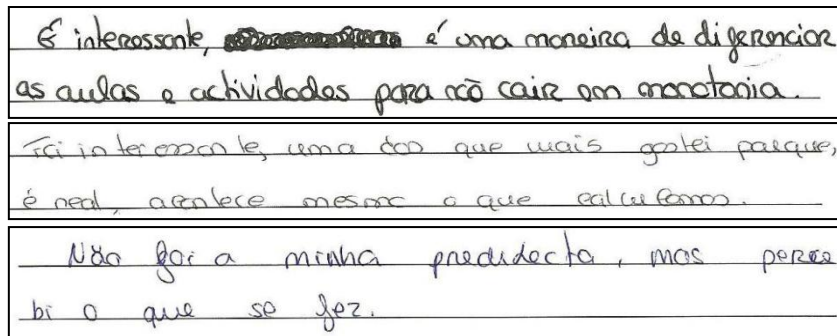 É interessante, é uma maneira de diferenciar
as aulas e actividades para não cair em monotonia.
Foi interessante, uma das que mais gostei porque,
é real, acontece mesmo o que calculamos.
Não foi a minha predidecta, mas perce
bi o que se fez.